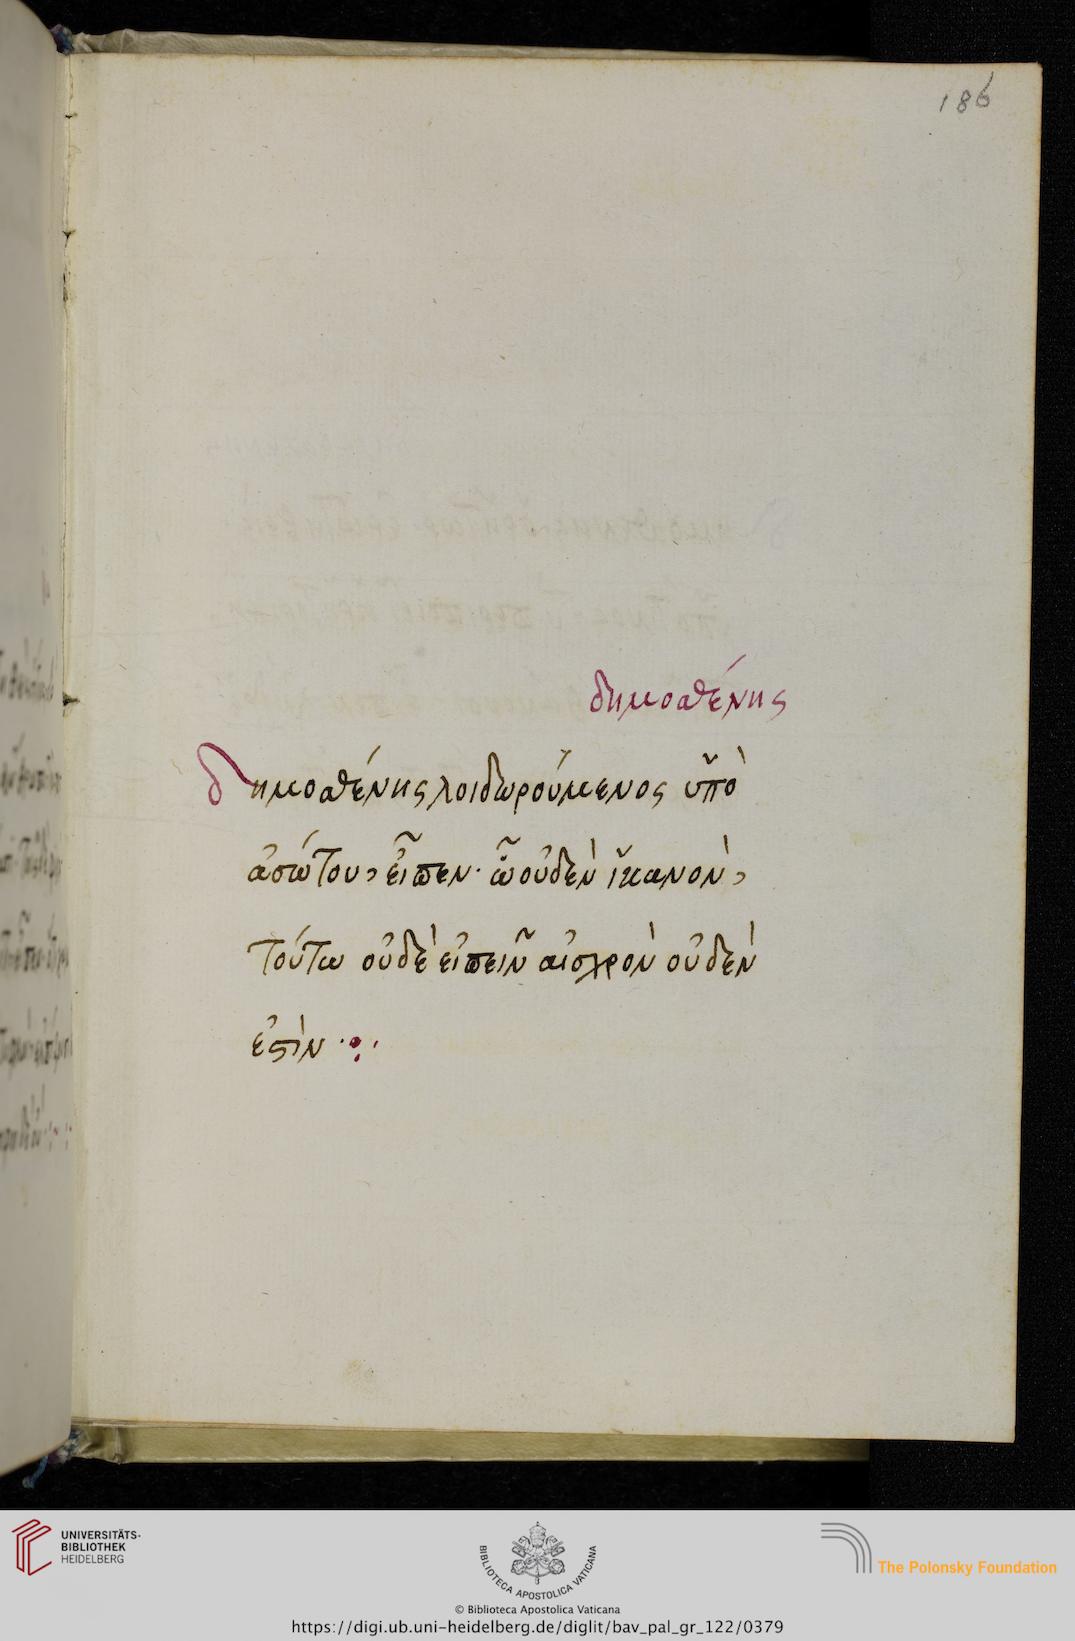 186
δημοσθένης
δημοσθένης λοιδωρούμενος ὑπὸ
ἀσώτου, εἶπεν· ὧ οὐδὲν ἱκανὸν,
τούτω οὐδὲ εἰπεῖν αἰσχρὸν οὐδὲν
ἐστὶν
UNIVERSITÄTS-
BIBLIOTHEK
HEIDELBERG
BIBLIOTECA APOSTOLICA VATICANA
© Biblioteca Apostolica Vaticana
The Polonsky Foundation
https://digi.ub.uni-heidelberg.de/diglit/bav_pal_gr_122/0379